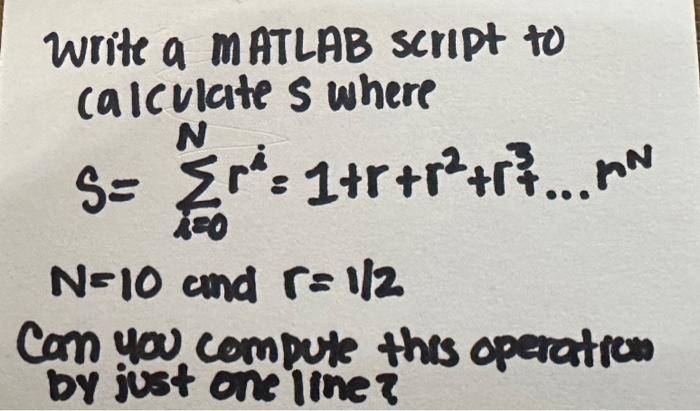 Write a MATLAB script to
calculate S where
S= N∑i=0 rⁱ = 1+r+r²+r³+...rᴺ
N=10 and r=1/2
Can you compute this operation
by just one line?